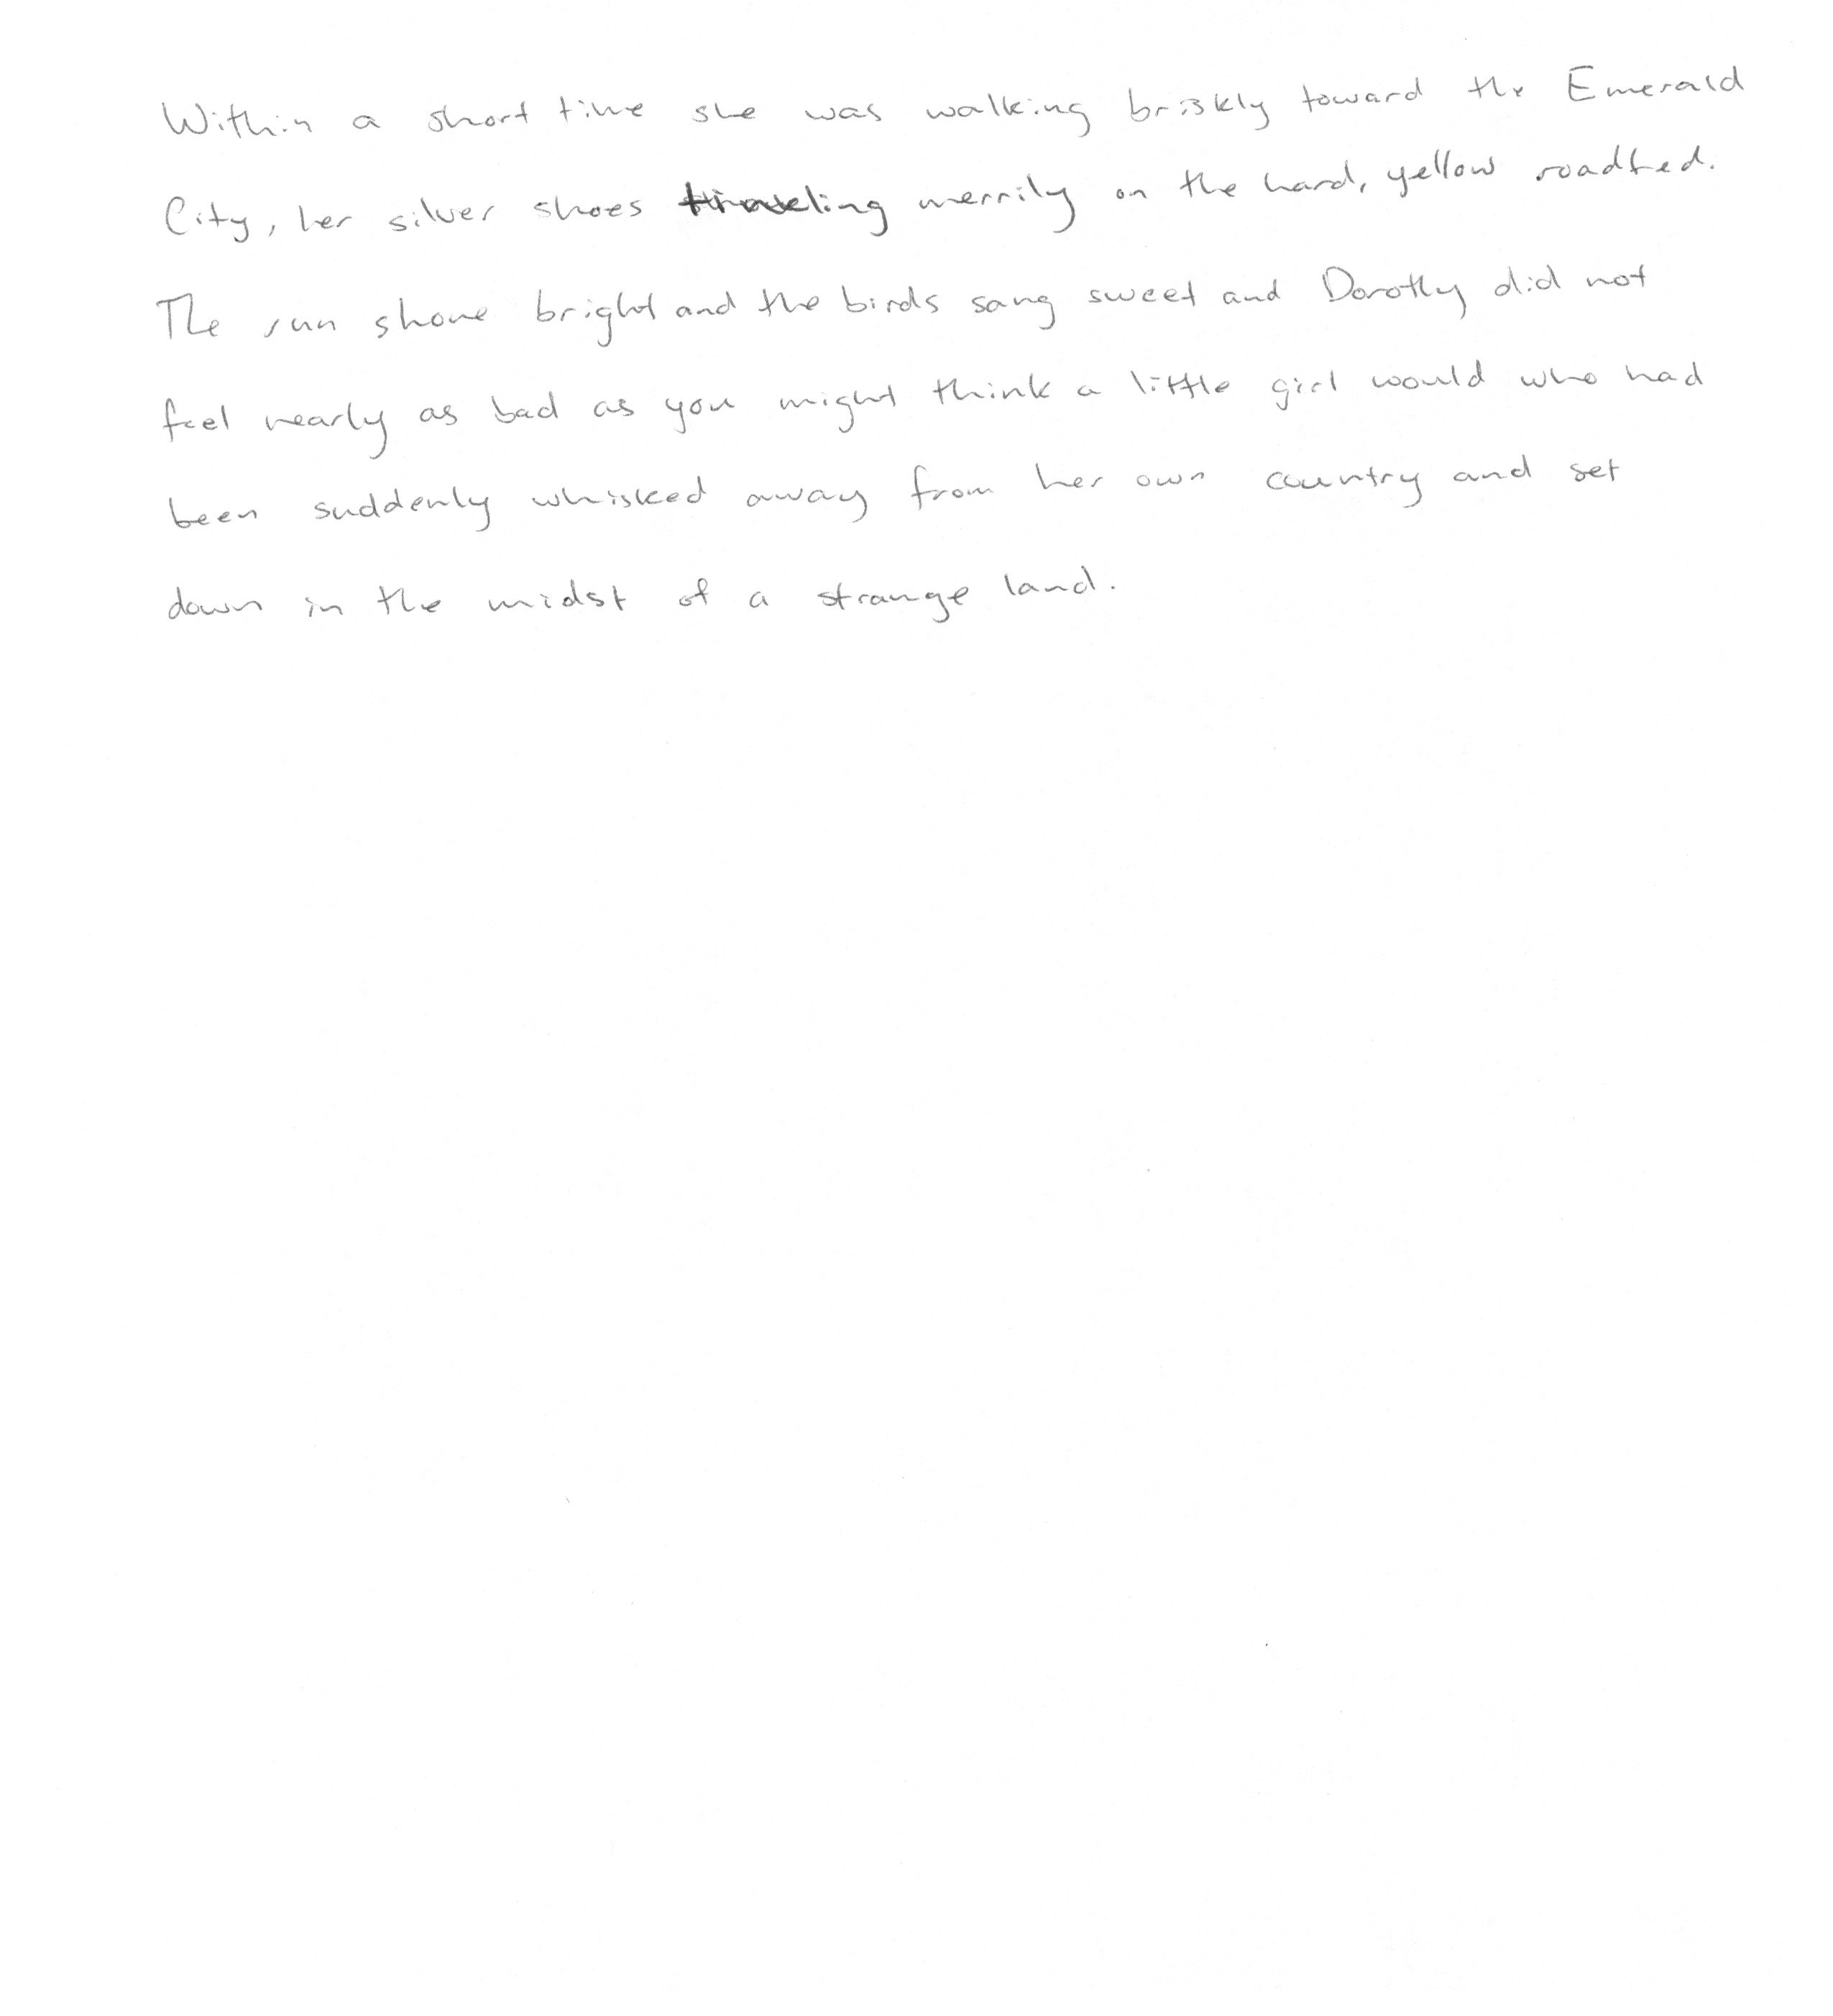 Within a short time she was walking briskly toward the Emerald
City, her silver shoes merrily on the hard, yellow roadbed.
The sun shone bright and the birds sang sweet and Dorothy did not
feel nearly as bad as you might think a little girl would who had
been suddenly whisked away from her own country and set
down in the midst of a strange land.